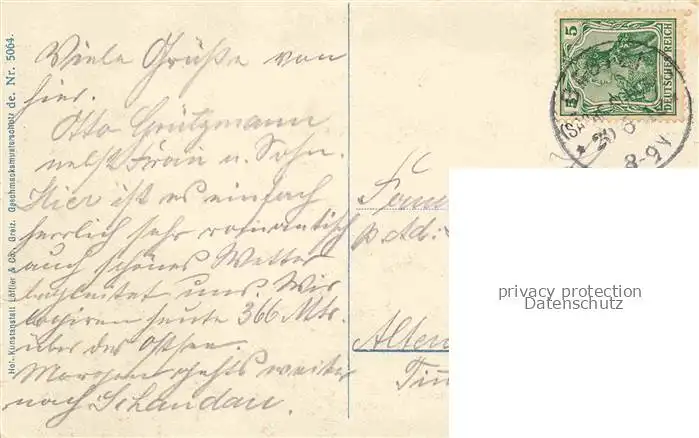 Viele Grüße von
hier.
Otto Grützmann
nebst Frau u. Sohn.
Hier ist es einfach
herrlich sehr romantisch
auch schönes Wetter
begleitet uns. Wir
logiren heute 366 Mtr.
über der Ostsee.
Morgen gehts weiter
nach Schandau.
Hof-Kunstanstalt Löffler & Co., Greiz. Geschmacksmusterschutz de. Nr. 5064.
5
5
DEUTSCHES REICH
8-9V
Fam
p Ad:
Alten
privacy protection
Datenschutz